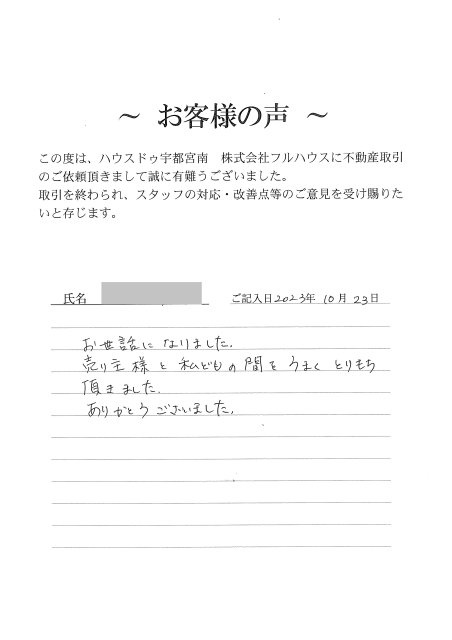 ～ お客様の声 ～
この度は、ハウスドゥ宇都宮南　株式会社フルハウスに不動産取引
のご依頼頂きまして誠に有難うございました。
取引を終わられ、スタッフの対応・改善点等のご意見を受け賜りた
いと存じます。
氏名　ご記入日2023年 10月 23日
お世話になりました.
売り主様と私どもの間をうまくとりもち
頂きました.
ありがとうございました.